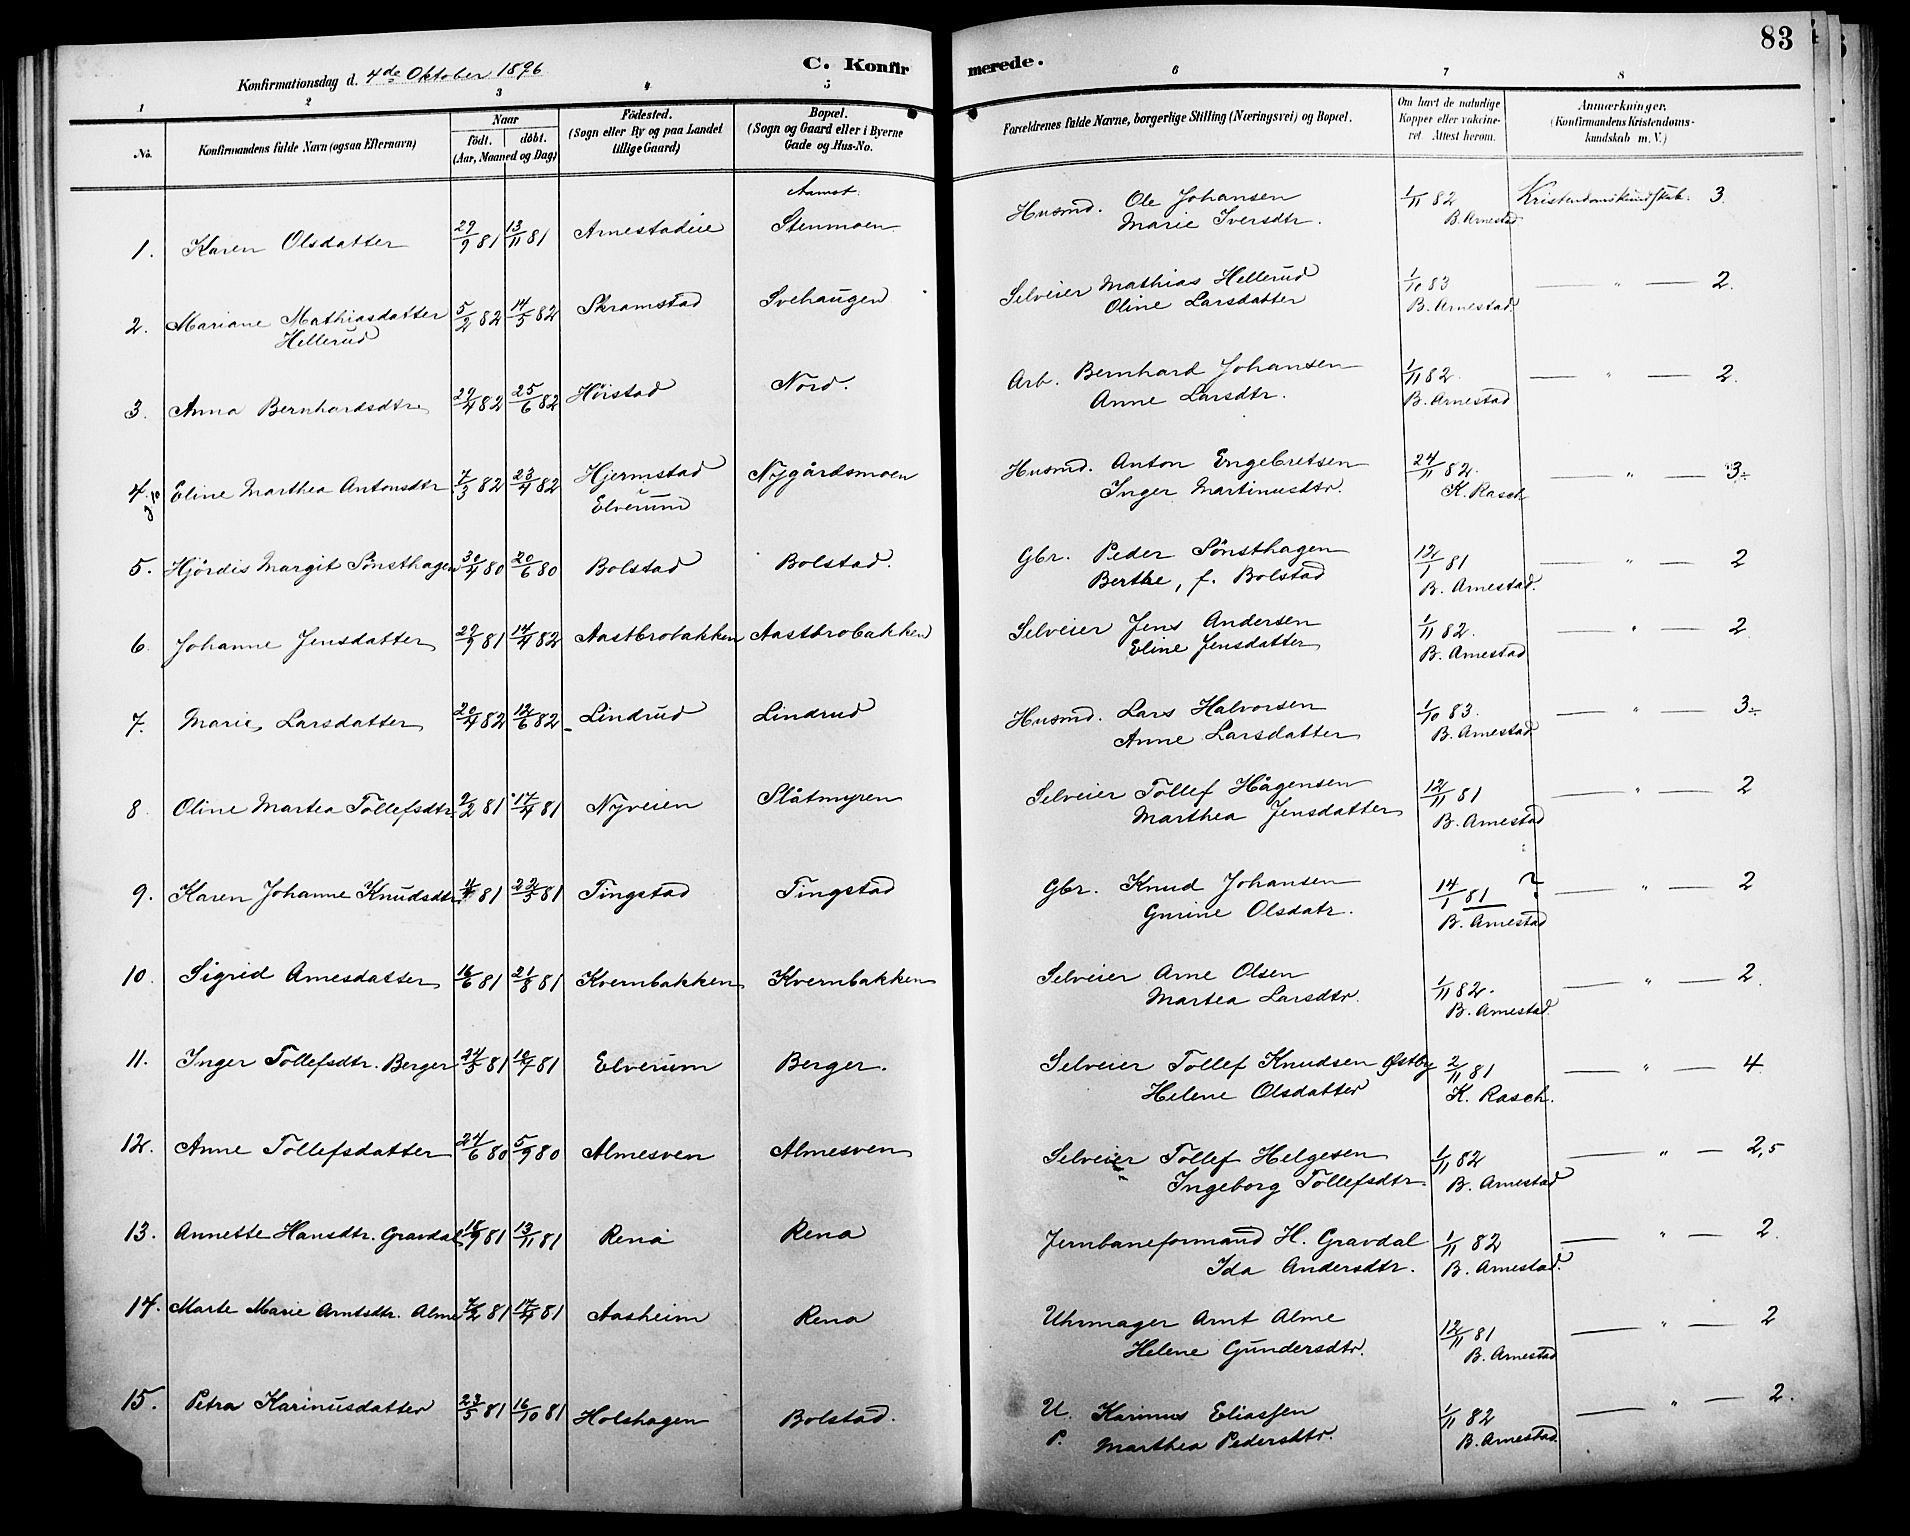 83
Konfirmationsdag d. 4de Oktober 1896
C. Konfirmerede.
1 2 3 4 5 6 7 8
No. Konfirmandens fulde Navn (ogsaa Efternavn) Naar födt. döbt. (Aar, Maaned og Dag) Födested. (Sogn eller By og paa Landet tillige Gaard) Bopæl. (Sogn og Gaard eller i Byerne Gade og Hus-No. Forældrenes fulde Navne, borgerlige Stilling (Næringsvei) og Bopæl. Om havt de naturlige Kopper eller vakcineret. Attest herom. Anmærkninger. (Konfirmandens Kristendomskundskab m. V.)
Aamot.
1. Karen Olsdatter 29/9 81 13/11 81 Arnestadeie Stenmoen Husmd. Ole Johansen 1/11 82 Kristendomskundskab. 3.
Marie Iversdtr. B. Arnestad
2. Mariane Mathiasdatter 5/2 82 14/5 82 Skramstad Svehaugen Selveier Mathias Hellerud 1/10 83 — " — 2.
Hellerud Oline Larsdatter B. Arnestad.
3. Anna Bernhardsdtr. 29/4 82 25/6 82 Höistad Nord. Arb. Bernhard Johansen 1/11 82. — " — 2.
Anne Larsdtr. B. Arnestad
4. Eline Marthea Antonsdtr. 7/3 82 23/4 82 Hjermstad Nygårdsmoen Husmd. Anton Engebretsen 24/11 82. — " — 3÷
Elverum Inger Martinusdtr. K. Rasch
5. Hjördis Margit Sönsthagen 30/4 80 20/6 80 Bolstad Bolstad. Gbr. Peder Sönsthagen 12/1 81 — " — 2
Berthe, f. Bolstad B. Arnestad.
6. Johanne Jensdatter 29/9 81 14/4 82 Aastbrobakken Aastbrobakken Selveier Jens Andersen 1/11 82. — " — 2
Eline Jensdatter B. Arnestad
7. Marie Larsdatter 20/4 82 12/6 82 Lindrud Lindrud Husmd. Lars Halvorsen 1/10 83. — " — 3÷
Anne Larsdatter B. Arnestad
8. Oline Martea Tollefsdtr. 9/2 81 17/4 81 Nyveien Slåtmyren Selveier Tollef Hågensen 12/11 81 — " — 2
Marthea Jensdatter B. Arnestad
9. Karen Johanne Knudsdtr. 81 22/5 81 Tingstad Tingstad Gbr. Knud Johansen 14/1 81 ? — " — 2
Gurine Olsdatr. B. Arnestad
10. Sigrid Arnesdatter 16/6 81 21/8 81 Kvernbakken Kvernbakken Selveier Arne Olsen 1/11 82. — " — 2.
Martea Larsdtr. B. Arnestad.
11. Inger Tollefsdtr. Berger 24/5 81 10/7 81 Elverum Berger. Selveier Tollef Knudsen Østby 2/11 81 — " — 4
Helene Olsdatter K. Rasch.
12. Anne Tollefsdatter 24/6 80 5/9 80 Almesven Almesven Selveier Tollef Helgesen 1/11 82 — " — 2,5
Ingeborg Tollefsdtr. B. Arnestad
13. Annette Hansdtr. Gravdal 18/9 81 13/11 81 Rena Rena Jernbaneformand H. Gravdal 1/11 82 — " — 2.
Ida Andersdtr. B. Arnestad.
14. Marte Marie Arntsdtr. Alme 7/2 81 17/4 81 Aasheim Rena Uhrmager Arnt Alme 12/11 81 — " — 2
Helene Gundersdtr. B. Arnestad
15. Petra Karinusdatter 23/5 81 16/10 81 Holshagen Bolstad. U. Karinus Eliassen 1/11 82 — " — 2.
P. Marthea Pedersdtr. B. Arnestad